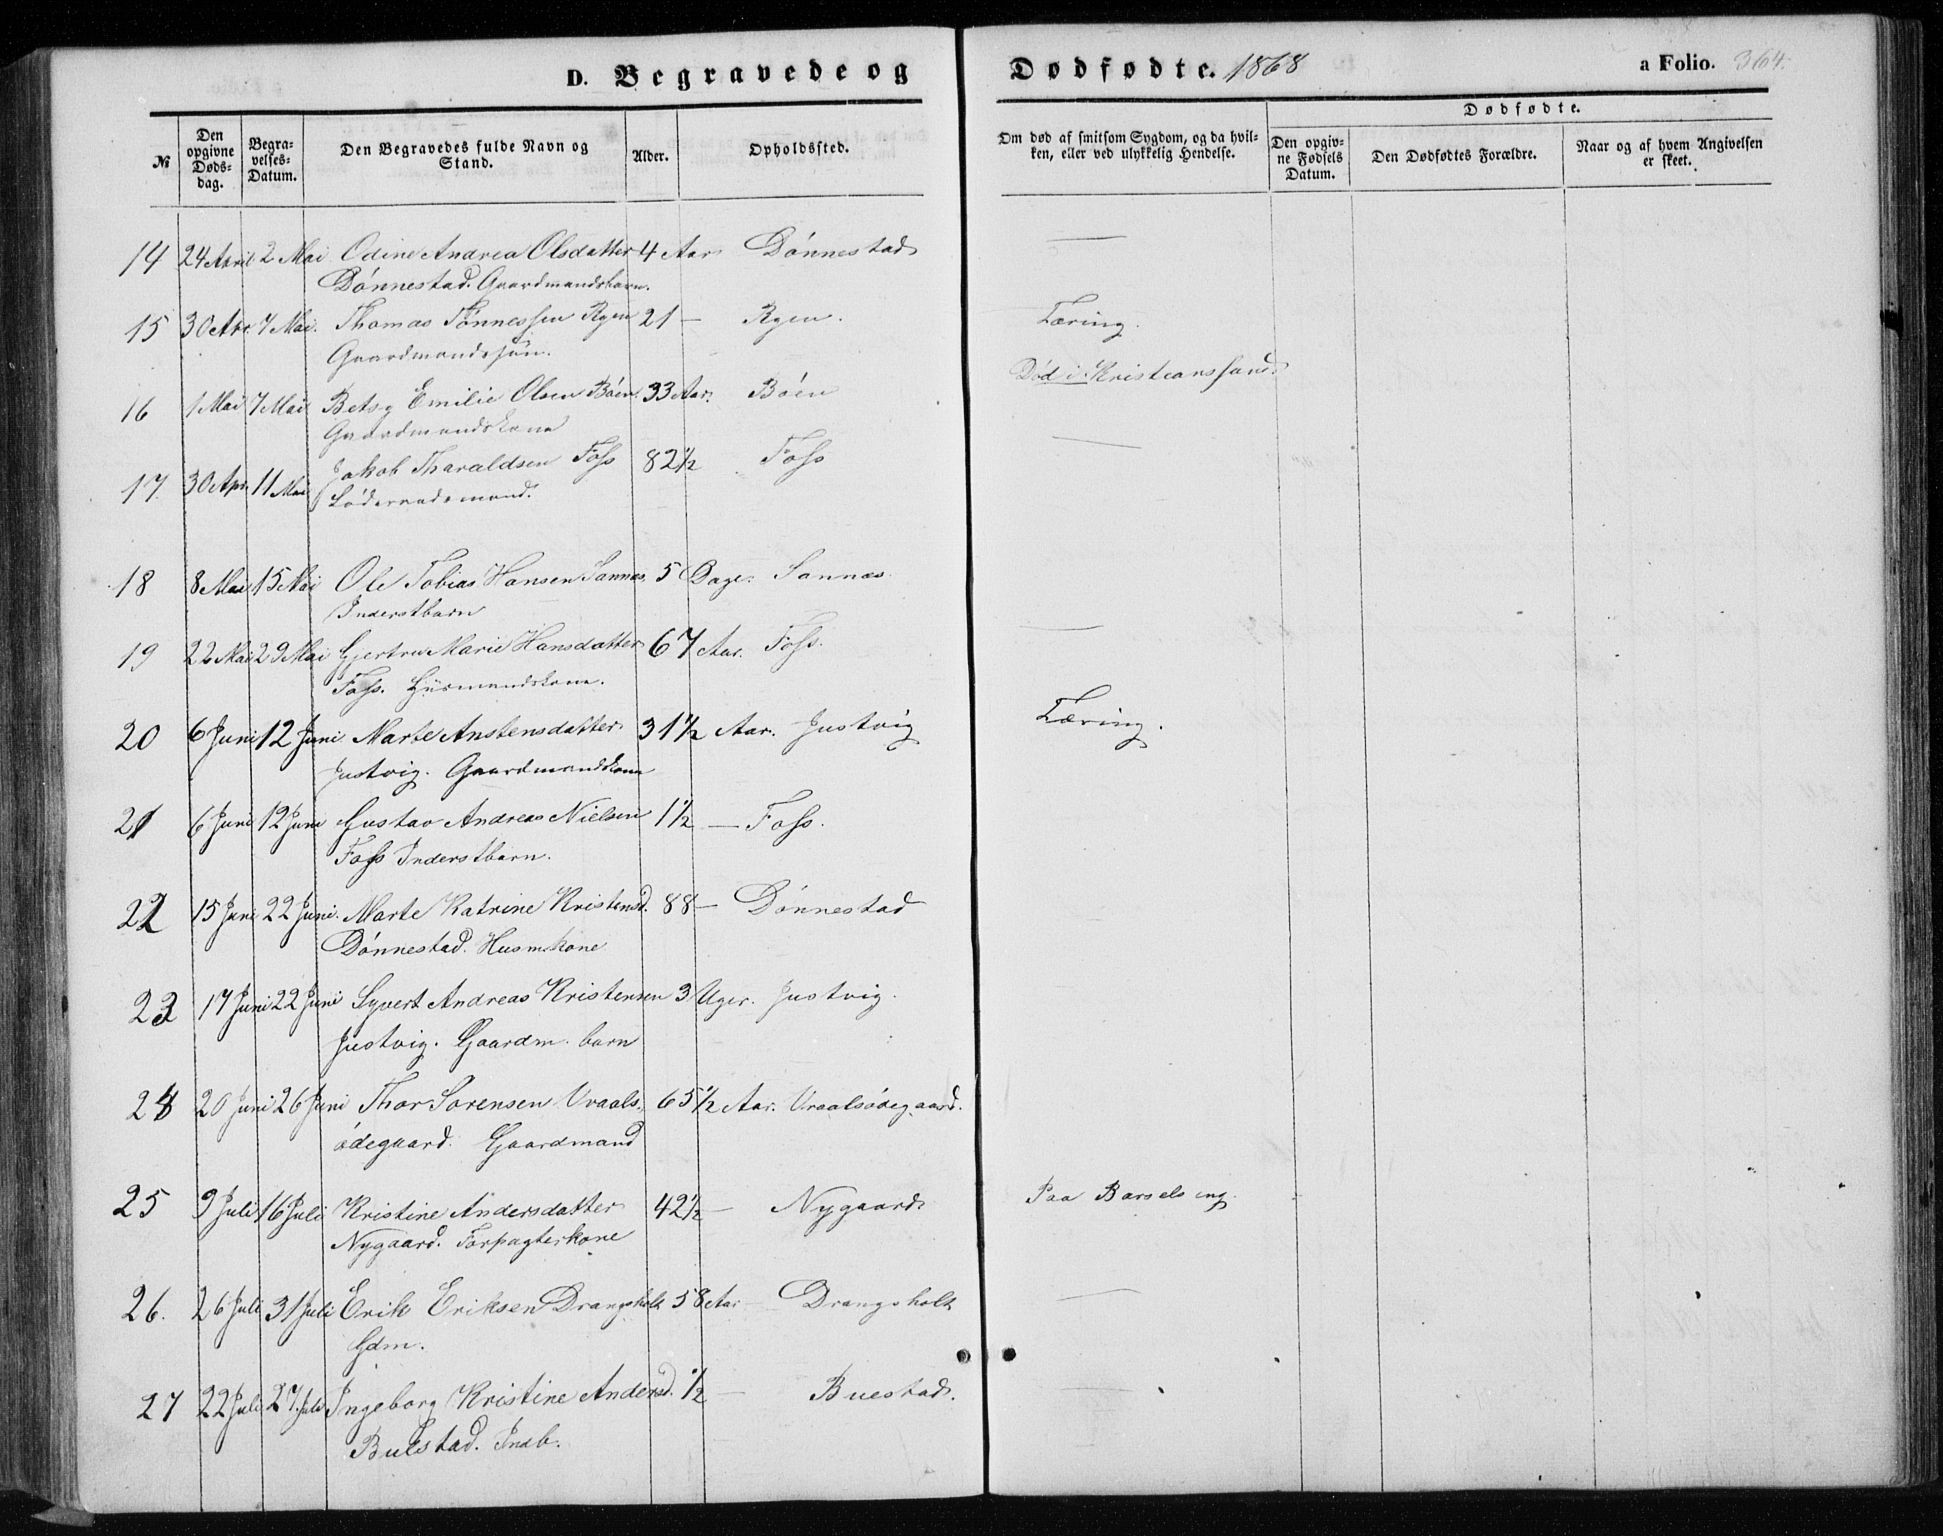 D. Begravede og Dødfødte. 1868 a Folio. 364.
№ Den opgivne Døds-dag. Begra-velses-Datum. Den Begravedes fulde Navn og Stand. Alder. Opholdssted. Om død af smitsom Sygdom, og da hvil-ken, eller ved ulykkelig Hendelse. Dødfødte. Den opgiv-ne Fødsels Datum. Den Dødfødtes Forældre. Naar og af hvem Angivelsen er skeet.
14 24 April 2 Mai Odine Andrea Olsdatter 4 Aar Dønnestad —
Dønnestad. Gaardmandsbarn.
15 30 Apr. 7 Mai. Thomas Tønnessen Ryen 21 — Ryen. Tæring.
Gaardmandssøn.
16 1 Mai 7 Mai Betsy Emilie Olsen Bóen 33 Aar. Bóen Død i Kristianssand.
Gaardmandskone
17. 30 Apr. 11 Mai Jakob Tharaldsen Foss 82½ Foss —
Føderaadsmand.
18 8 Mai 15 Mai Ole Tobias Hansen Sannes. 5 Dage. Sannes.
Inderstbarn
19 22 Mai 29 Mai Gjertru Marie Hansdatter 67 Aar. Foss. —
Foss. Husmandskone.
20 6 Juni 12 Juni Marte Anstensdatter 31½ Aar. Justvig Tæring.
Justvig. Gaardmandskone
21 6 Juni 12 Juni Gustav Andreas Nielsen 1½ — Foss.
Foss Inderstbarn.
22 15 Juni 22 Juni. Marte Katrine Kristensd. 88 — Dønnestad
Dønnestad. Husm.kone
23 17 Juni 22 Juni Syvert Andreas Kristensen 3 Uger. Justvig.
Justvig. Gaardm. barn
24 20 Juni 26 Juni Thor Sorensen Vraals- 65½ Aar. Vraalsødegaard.
ødegaard. Gaardmand
25 9 Juli 16 Juli Kristine Andersdatter 42½ — Nygaard Paa Barselseng.
Nygaard. Forpagterkone
26. 26 Juli 31 Juli Erik Eriksen Drangsholt 58 Aar Drangsholt —
Gdm.
27 22 Juli 27. Juli Ingeborg Kristine Andersd. ½ — Buestad.
Buestad. Indb.